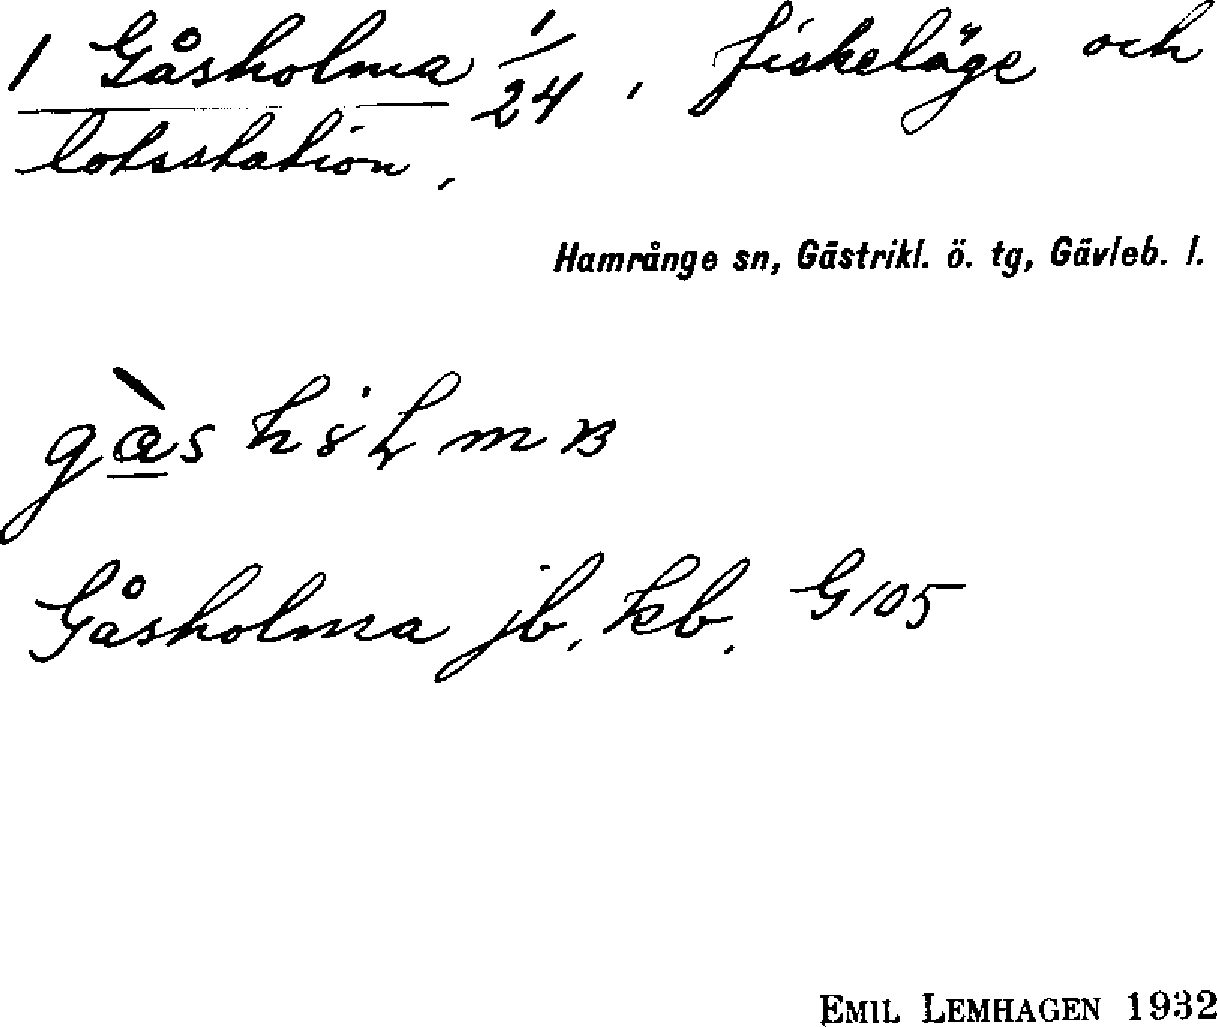 1 Gåsholma 1/24, fiskeläge och
lotsstation,
Hamrånge sn, Gästrikl. ö. tg, Gävleb. l.
Gåsholma jb, kb, G105
EMIL LEMHAGEN 1932